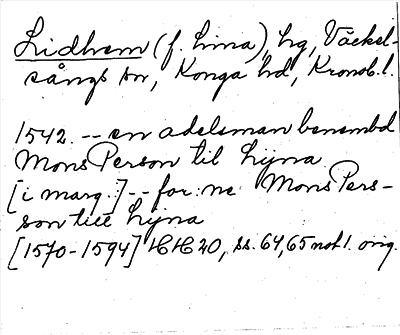 Lidhem (f. Lina), hg, Väckel-
sångs sn, Konga hd, Kronob. l.
1542. -- en adelsman benembd
Mons Person til Lijna
[i marg.] -- for:ne Mons Pers-
son till Lijna
[1570-1594] HH 20, ss. 64, 65 not 1. orig.